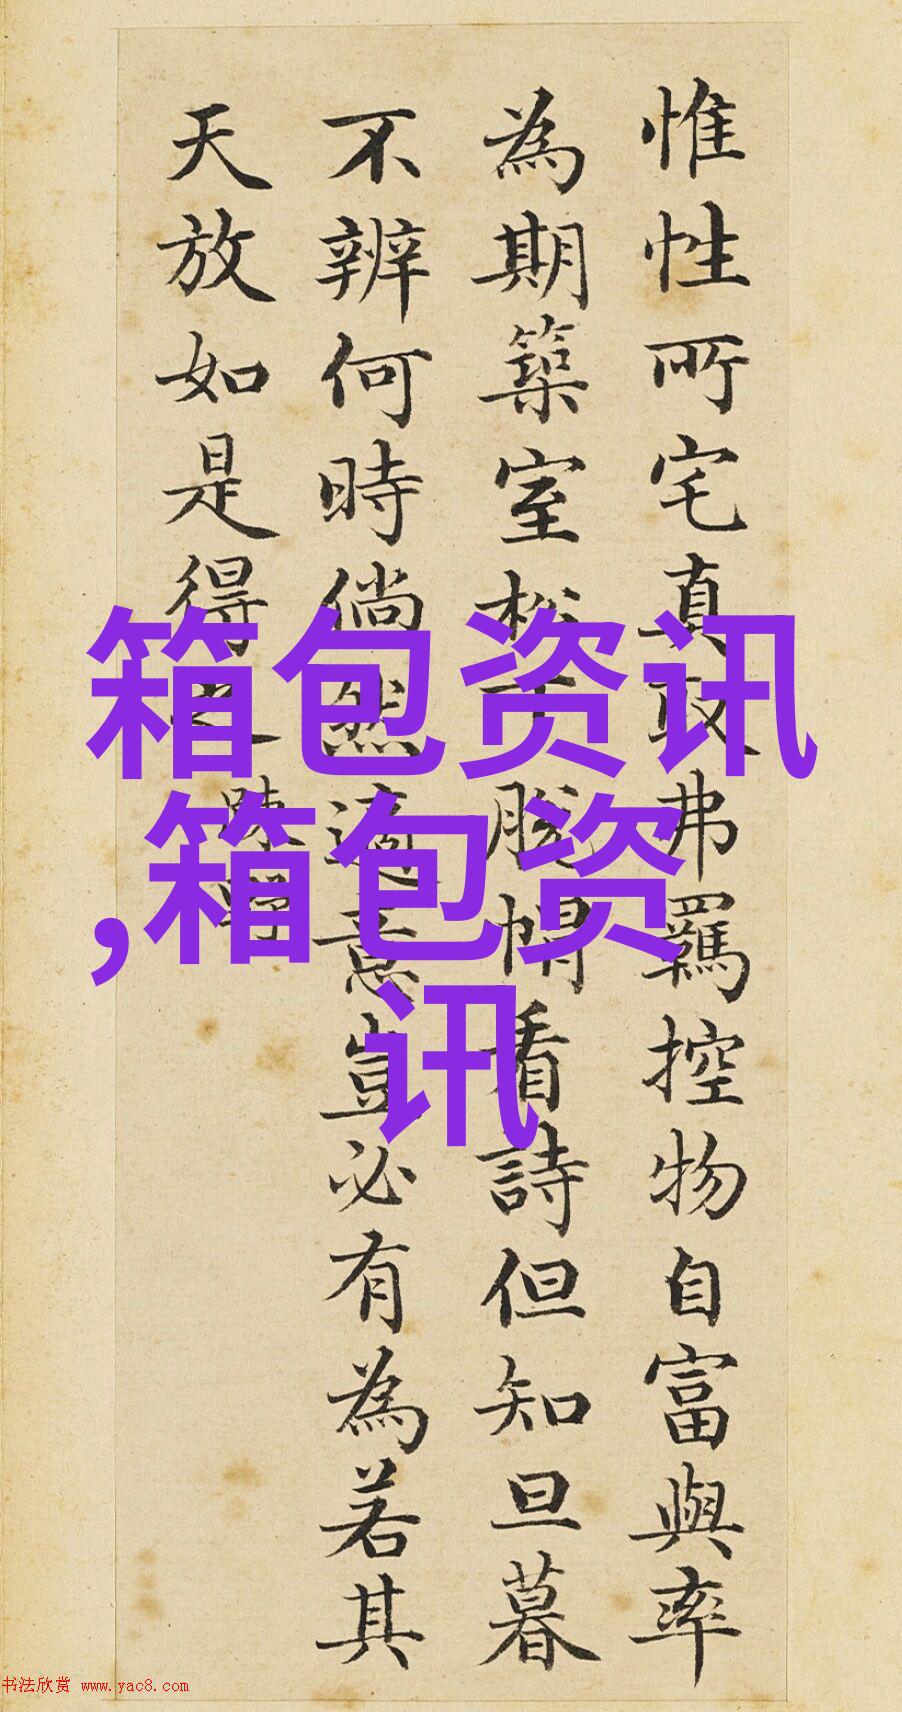 惟性所宅真取弗羈控物自富與率
為期築室松下脫帽看詩但知旦暮
不辨何時倘然適意豈必有為若其
天放如是得之
疎野
箱包资讯
,箱包资
讯
书法欣赏 www.yac8.com